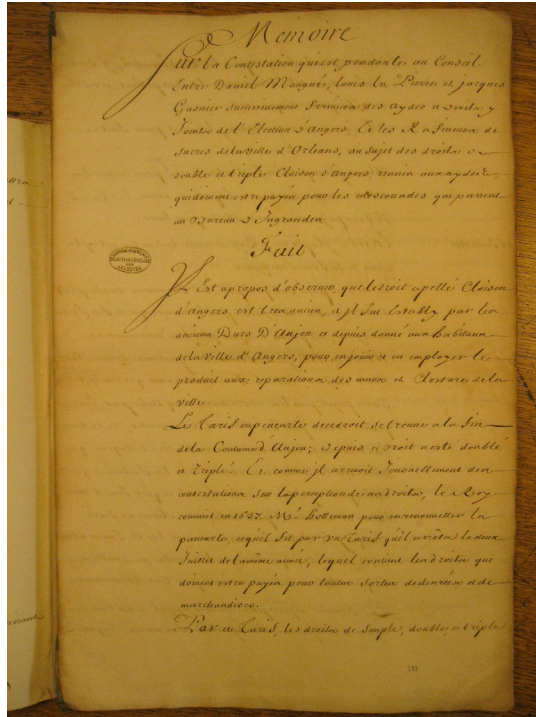 Memoire
Sur la Contestation qui est pendante au Conseil
Entre Daniel Maugné, Louis la Pierre et jacques
Gasnier Fermiers des aydes et droits y
Joints de l'Election d'Angers, Et les Rafineurs de
sucres de la Ville d'Orleans, au sujet des droits de
double et triple Cloison d'angers reunis aux aydes
qui doivent estre payés pour les moscouades qui passent
au Bureau d'Ingrandes
Fait
Il Est a propos d'observer, que le droit apellé Cloison
d'angers est tres ancien, a jl fut Establÿ par les
anciens Ducs D'Anjou et depuis donné aux habitans
de la Ville d'Angers, pour en joüir et en employer le
produit aux reparations des murs et Closture de la
Ville
Le Tarif ou pencarte de ce droit se trouve a la fin
de la Coutume d'Anjou; depuis ce droit a esté doublé
et Triplé. Et comme jl arrivoit Journellement des
contestations Sur la perception de ces droits, le Roy
commit en 1657. Mr. Botteman pour en renouveller la
pancarte, ce qu'il fit par un Tarif qu'il arrêta le deux
Juillet de la même année, lequel contient les droits qui
doivent estre payés pour toutes sortes de denrées et de
marchandises.
Par ce Tarif, les droits de Simple, double et triple